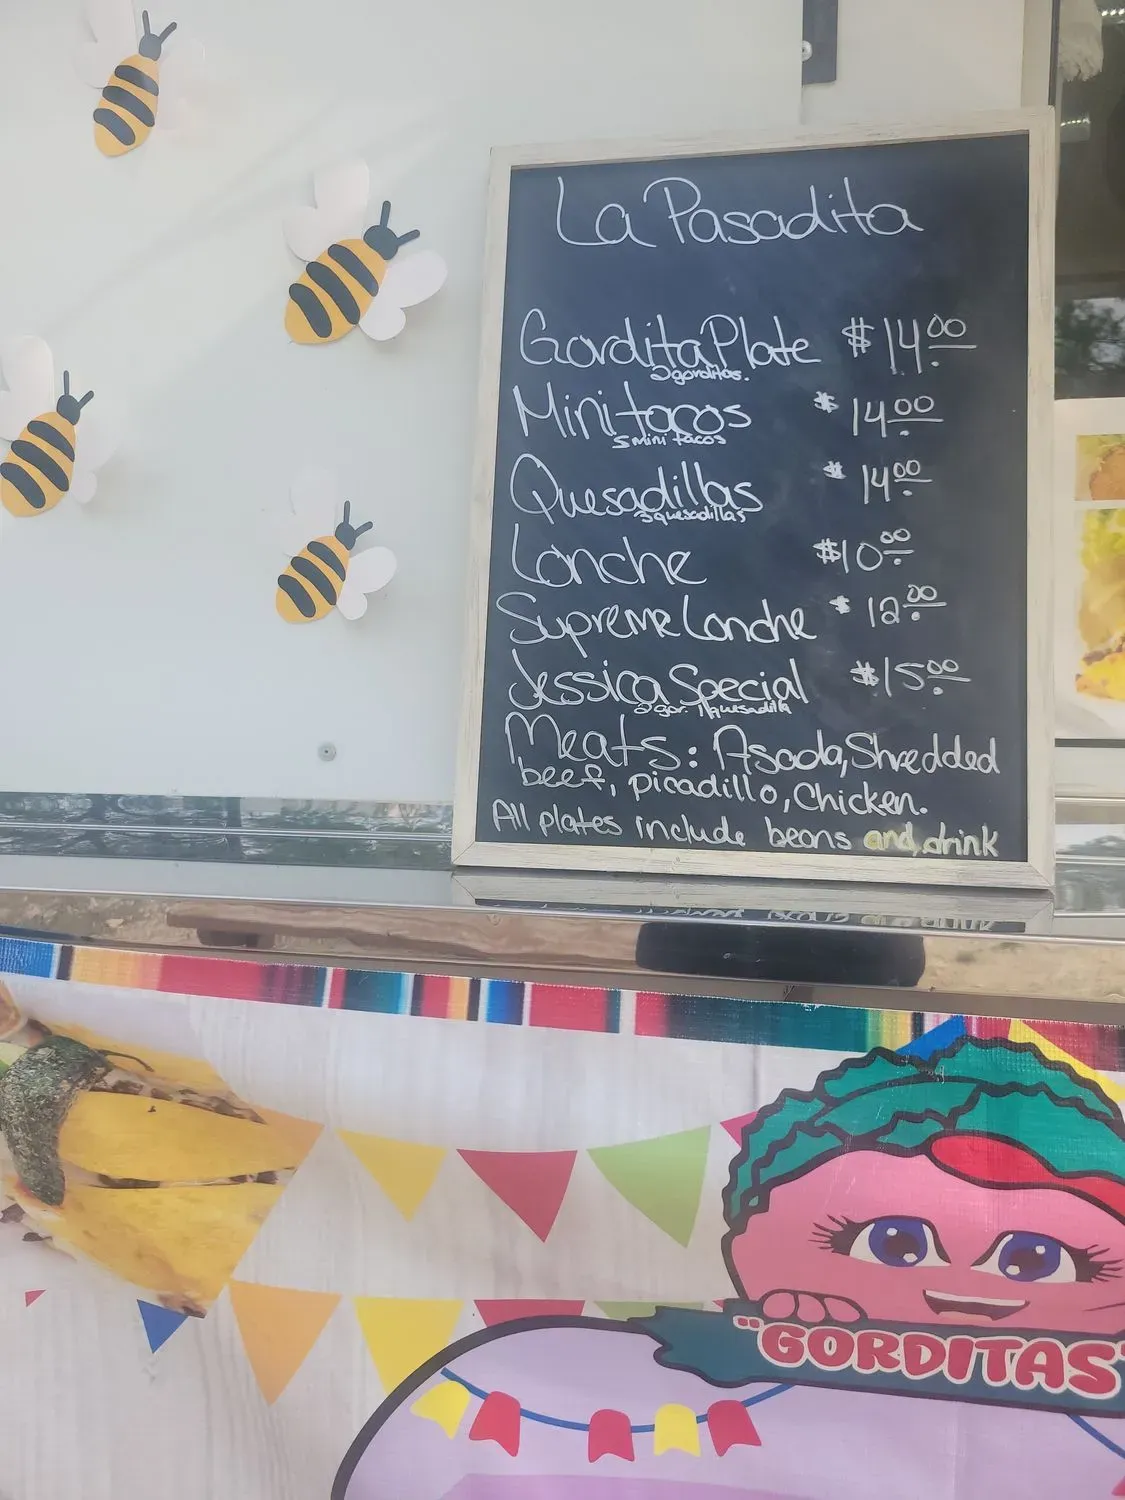 La Pasadita
Gordita Plate $14.00
2 gorditas.
Mini tacos $14.00
5 mini tacos
Quesadillas $14.00
3 quesadillas
Lonche $10.00
Supreme Lonche $12.00
Jessica Special $15.00
2 gor. 1 quesadilla
Meats: Asada, Shredded
beef, picadillo, Chicken.
All plates include beans and drink
"GORDITAS"